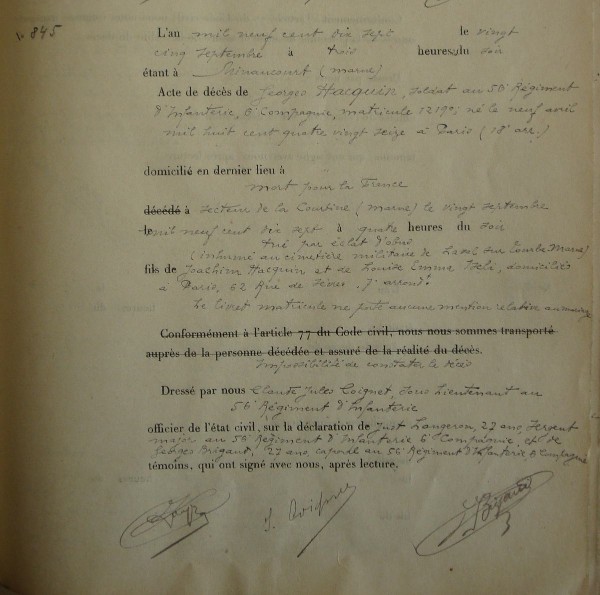 N° 845
L'an mil neuf cent dix sept le vingt
cinq septembre à trois heures du soir
étant à (marne)
Acte de décès de Georges Hacquin, soldat au 56e Régiment
d'Infanterie, 6e Compagnie, matricule 12190; né le neuf avril
mil huit cent quatre vingt seize à Paris (18e arr.)
domicilié en dernier lieu à
mort pour la France
décédé à secteur de la Courtine (marne) le vingt septembre
le mil neuf cent dix sept à quatre heures du soir
tué par éclat d'obus
(inhumé au cimetière militaire de Laval sur Tourbe Marne)
fils de Joachim Hacquin et de Louise Emma, domiciliés
à Paris, 62 Rue de Sèvres. 7e arrondt
Le livret matricule ne porte aucune mention relative au mariage
Conformément à l'article 77 du Code civil, nous nous sommes transporté
auprès de la personne décédée et assuré de la réalité du décès.
Impossibilité de constater le décès
Dressé par nous Claude Jules Loignet, sous Lieutenant au
56e Régiment d'Infanterie
officier de l'état civil, sur la déclaration de Just Langeron, 27 ans, sergent
major au 56e Régiment d'Infanterie 6e Compagnie, et de
Georges Brigand, 27 ans, caporal au 56e Régiment d'Infanterie 6e Compagnie
témoins, qui ont signé avec nous, après lecture.